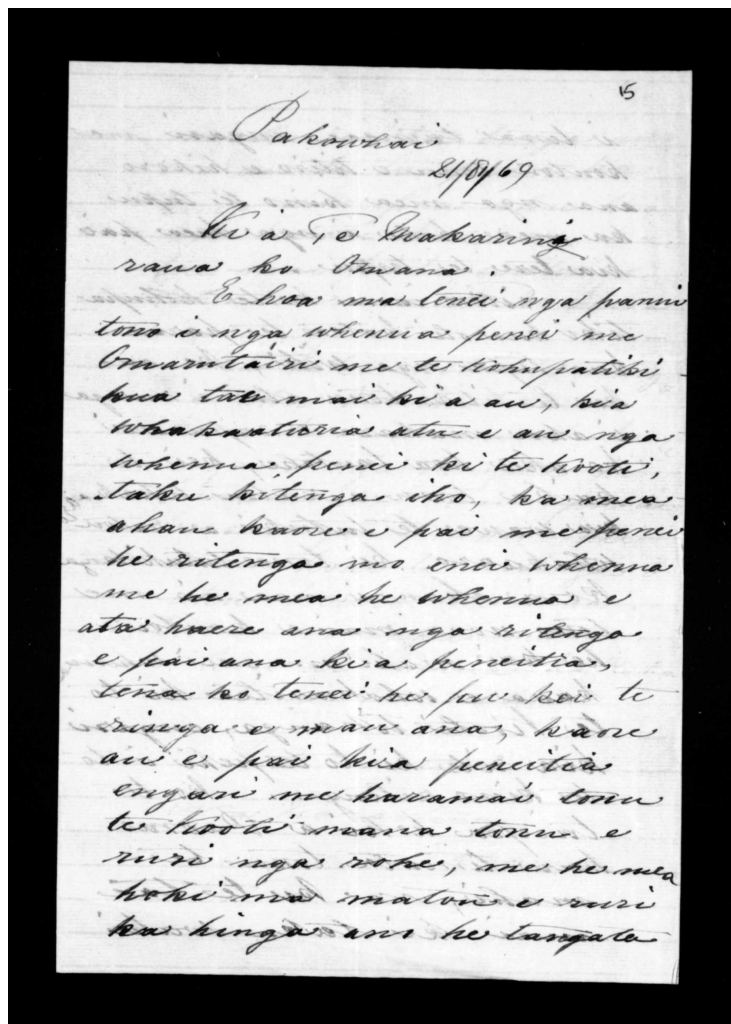 15
Pakowhai
21/8/69
Ki a Te Makarini
raua ko Omana.
E hoa ma tenei nga panui
tono i nga whenua penei me
Omarutairi me te Kohupatiki
kua tae mai ki a au, kia
whakaaturia atu e au nga
whenua penei ki te Kooti,
taku kitenga iho, ka mea
ahau kaore e pai me penei
he ritenga mo enei whenua
me he mea he whenua e
ata haere ana nga ritenga
e pai ana kia peneitia,
tena ko tenei he pu kei te
ringa e mau ana, kaore
au e pai kia peneitia
engari me haramai tonu
te Kooti mana tonu e
ruri nga rohe, me he mea
hoki ma matou e ruri
ka hinga ano he tangata